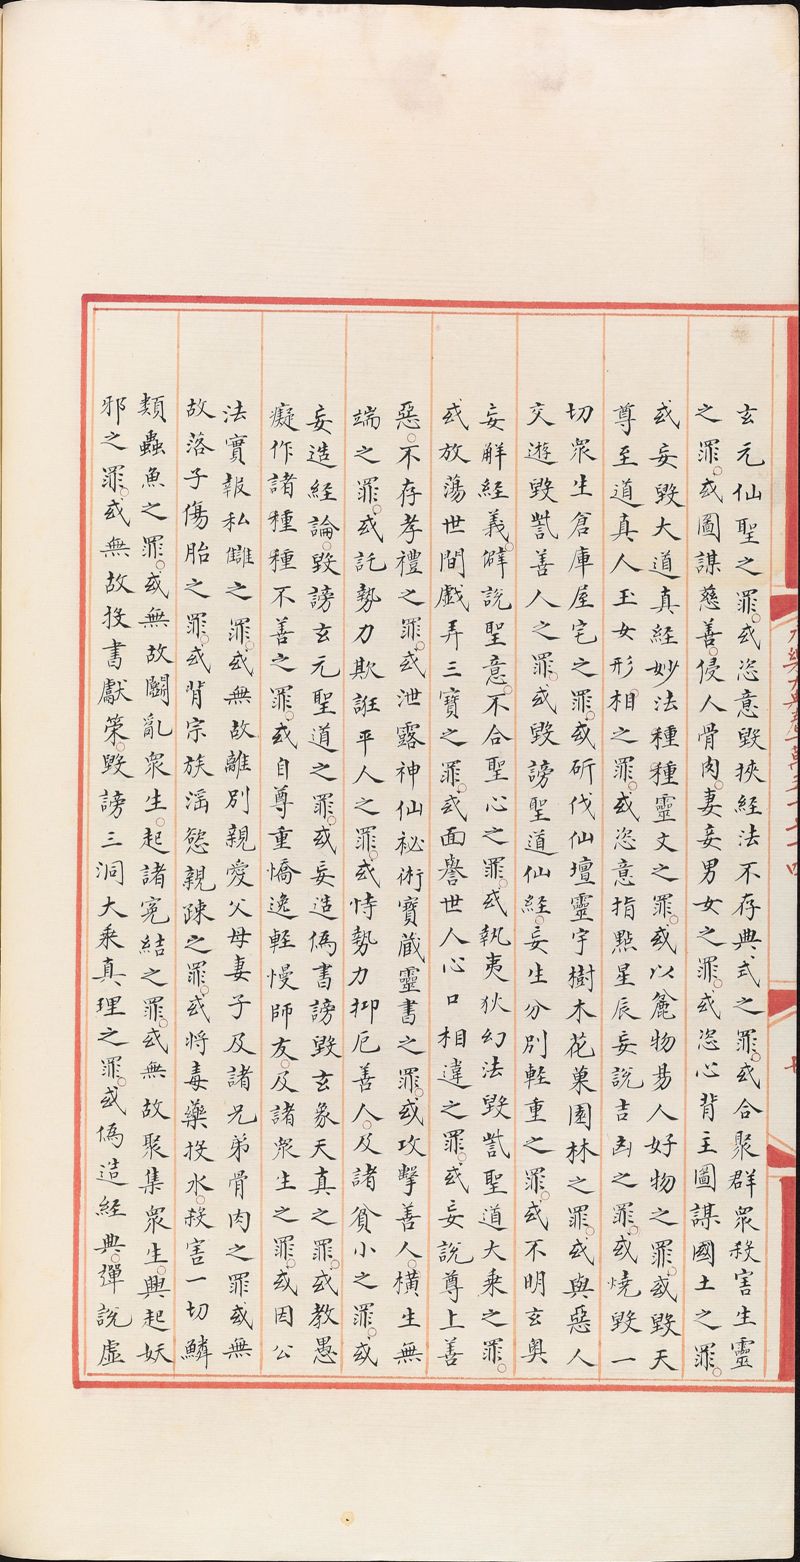 玄元仙聖之罪。或恣意毀挾經法不存典式之罪。或合聚群衆殺害生靈
之罪。或圖謀慈善。侵人骨肉。妻妾男女之罪。或恣心背主圖謀國土之罪。
或妄毀大道真經妙法種種靈文之罪。或以麄物昜人好物之罪。或毀天
尊至道真人玉女形相之罪。或恣意指㸃星辰妄說吉㐫之罪。或燒毀一
切衆生倉庫屋宅之罪。或斫伐仙壇靈宇樹木花菓園林之罪。或與惡人
交遊毀訾善人之罪。或毀謗聖道仙經。妄生分別輕重之罪。或不明玄奥
妄解經義。僻說聖意。不合聖心之罪。或執夷狄幻法毀訾聖道大乘之罪。
或放蕩世間戲弄三寶之罪。或面譽世人心口相違之罪。或妄說尊上善
惡。不存孝禮之罪。或泄露神仙祕術寶蔵靈書之罪。或攻擊善人。橫生無
端之罪。或託勢力欺誑平人之罪。或恃勢力抑厄善人。及諸貧小之罪。或
妄造經論。毀謗玄元聖道之罪。或妄造偽書謗毀玄象天真之罪。或教愚
癡作諸種種不善之罪。或自尊重憍逸輕慢師友。及諸衆生之罪。或因公
法實報私讎之罪。或無故離別親愛父母妻子及諸兄弟骨肉之罪或無
故落子傷胎之罪。或背宗族滛慾親踈之罪。或將毒藥投水。殺害一切鱗
類蟲魚之罪。或無故鬭亂衆生。起諸寃結之罪。或無故聚集衆生。興起妖
邪之罪。或無故投書獻策。毀謗三洞大乘真理之罪。或偽造經典。彈說虛